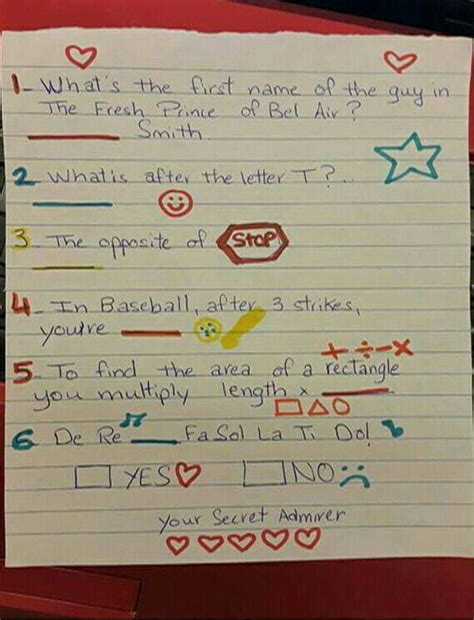 1- What's the first name of the guy in
The Fresh Prince of Bel Air?
_______ Smith
2 What is after the letter T?..
_______
3- The opposite of STOP
_______
4- In Baseball, after 3 strikes,
you're _______
+ ÷ - ×
5- To find the area of a rectangle
you multiply length x _______
6- De Re ____ Fa Sol La Ti Do!
YES NO
Your Secret Admirer